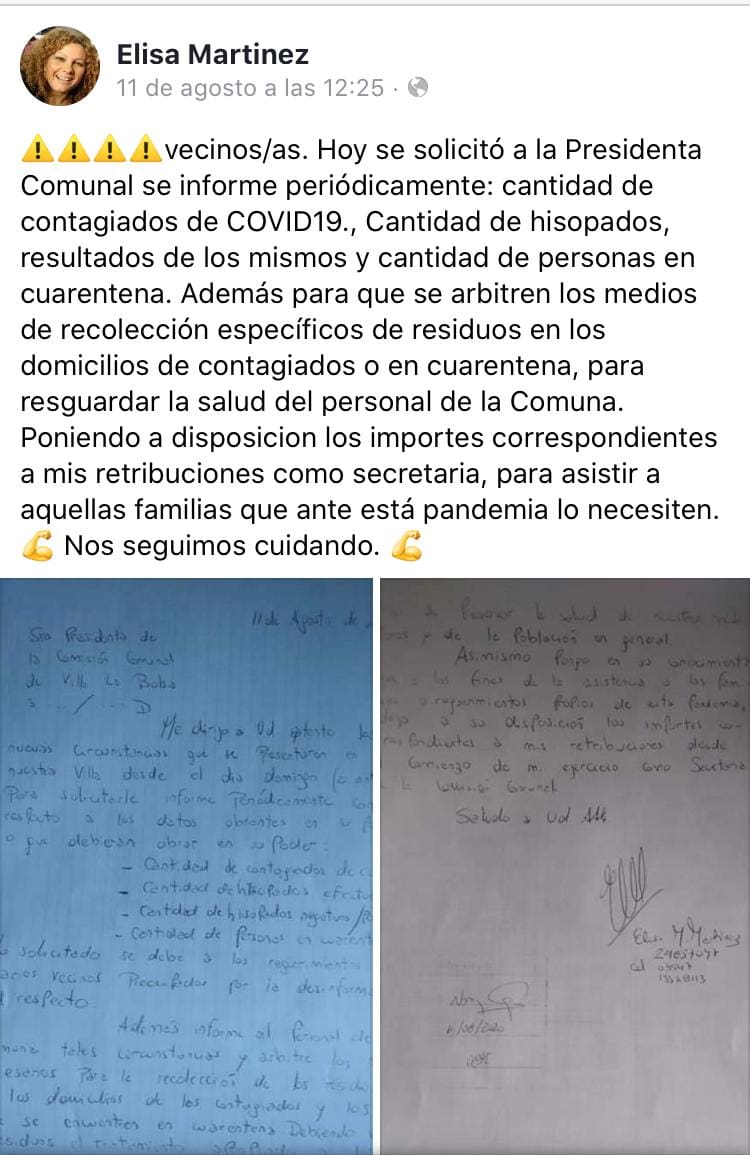 Elisa Martinez
11 de agosto a las 12:25
vecinos/as. Hoy se solicitó a la Presidenta
Comunal se informe periódicamente: cantidad de
contagiados de COVID19., Cantidad de hisopados,
resultados de los mismos y cantidad de personas en
cuarentena. Además para que se arbitren los medios
de recolección específicos de residuos en los
domicilios de contagiados o en cuarentena, para
resguardar la salud del personal de la Comuna.
Poniendo a disposicion los importes correspondientes
a mis retribuciones como secretaria, para asistir a
aquellas familias que ante está pandemia lo necesiten.
Nos seguimos cuidando.
11 de Agosto de
Sra Presidenta de
la Comisión Comunal
de Villa La Bolsa
S / D
Me dirijo a Ud
nuevas circunstancias que se presentaron en
nuestra Villa desde el día domingo
Para solicitarle informe Periódicamente con
respecto a los datos obrantes en su
o que debieran obrar en su Poder:
- Cantidad de contagiados de
- Cantidad de hisopados
- Cantidad de hisopados negativos
- Cantidad de Personas en cuarent
solicitado se debe a los requerimientos
vecinos Preocupados por la desinform
respecto.
Además informe al Personal de
tales circunstancias y arbitre los
Para la recolección de los
los domicilios de los contagiados y los
se encuentren en cuarentena Debiendo
el tratamiento
de Preservar la salud de
y de la Población en general.
Asimismo Pongo en su conocimiento
a los fines de la asistencia a las fam
requerimientos Propios de esta Pandemia,
a su disposición los importes co-
rrespondientes a mis retribuciones desde
comienzo de mi ejercicio como Secretaria
la Comisión Comunal.
Saludo a Ud Atte
M. Martinez
11/08/2020